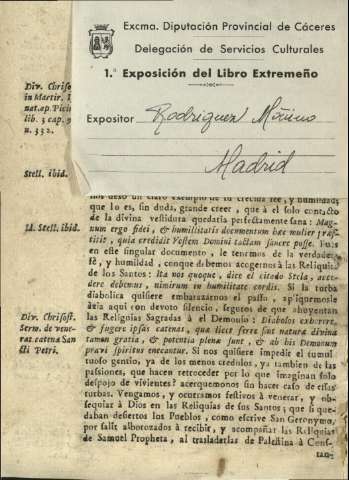 Excma. Diputación Provincial de Cáceres
Delegación de Servicios Culturales
1.ª Exposición del Libro Extremeño
Expositor Rodriguez Moñino
Madrid
Div. Chrisost.
in Martir.
nat. ap. Picin
lib. 3 cap. 9
n. 332.
Stell. ibid.
nos dexò un claro exemplo de su crecida fee, y humildad;
que lo es, sin duda, grande creer, que à el solo contacto
de la divina vestidura quedaria perfectamente sana: Mag-
num ergo fidei, & humilitatis documentum hæc mulier præs-
titit, quia credidit Vestem Domini tactam sanere posse. Pues
en este singular documento, le tenemos de la verdadera
fè, y humildad, conque debemos acogernos à las Reliquias
de los Santos: Ita nos quoque, dice el citado Stela, acce-
dere debemus, nimirum en humilitate cordis. Si la turba
diabolica quisiere embarazarnos el passo, apliquemosle
àzia aqui con devoto silencio, seguros de que ahuyentan
las Religuias Sagradas à el Demonio: Diabolos exhorrere,
& fugere ipsas catenas, qua licet ferre sint natura divina
tamen gratia, & potentia plenæ sunt, & ab his Demonum
pravi spiritus enecantur. Si nos quisiere impedir el tumul
tuoso gentio, ya de los menos credulos, ya tambien de las
passiones, que hacen retroceder por lo que imaginan solo
despojo de vivientes? acerquemonos sin hacer caso de estas
turbas. Vengamos, y ocurramos festivos à venerar, y ob-
sequiar à Dios en las Reliquias de sus Santos; que si que-
daban desiertos los Pueblos, como escrive San Geronymo,
por salir alborozados à recibir, y acompañar las Reliquias
de Samuel Propheta, al trasladarlas de Palestina à Cons-
tan-
Id. Stell. ibid.
Div. Chrisost.
Serm. de vene-
rat. catena San
cti Petri.